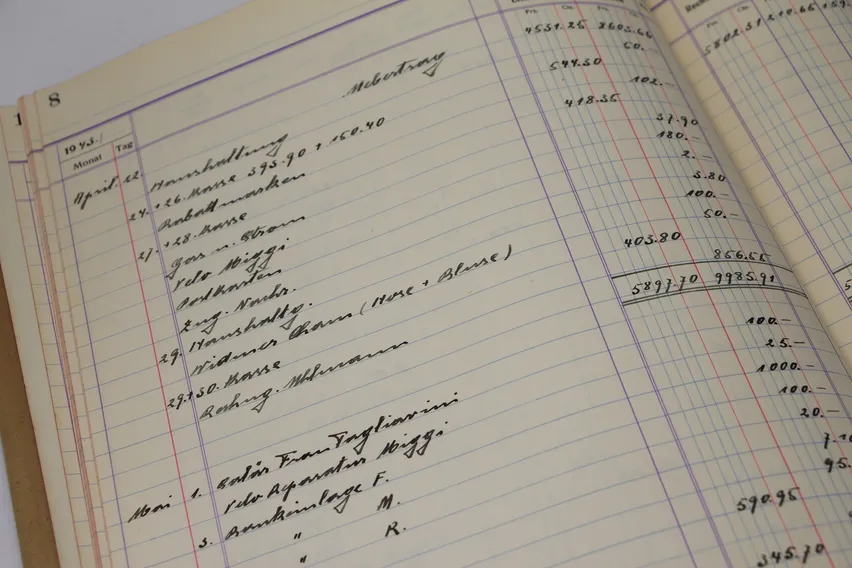 8
1943./
Monat Tag
Frs. Cts. Frs. Cts.
Übertrag 4531.25 8603.66 5802.31 210.66 159.
April. 22. Haushaltung 50.
24. + 26. Kasse 393.90 + 150.40 544.30
Rabattmarken 102.–
27. + 28. Kasse 418.35
Gas u. Strom 37.90
Velo Miggi 180.–
Postkarten 2.–
Zug. Nachr. 5.80
29. Haushaltg. 100.–
Widmer Cham (Hose + Bluse) 50.–
29. + 30. Kasse 403.80
Rechng. Uhlmann 856.55
5897.70 9985.91
Mai 1. Frau Tagliavini 100.–
Velo Reparatur Miggi 25.–
3. Bankeinlage F. 1000.–
" M. 100.–
" R. 20.–
7.10
95.
590.95
345.70